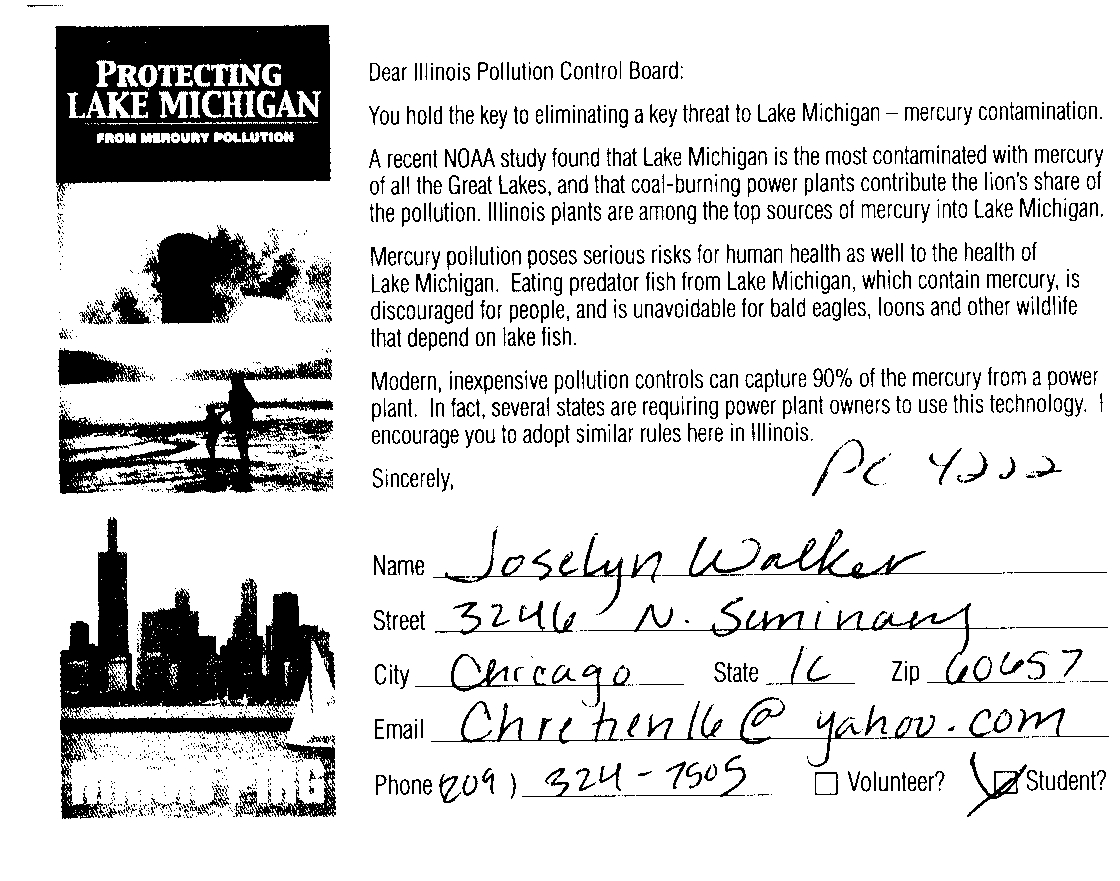 PROTECTING
LAKE MICHIGAN
FROM MERCURY POLLUTION
Dear Illinois Pollution Control Board:
You hold the key to eliminating a key threat to Lake Michigan – mercury contamination.
A recent NOAA study found that Lake Michigan is the most contaminated with mercury
of all the Great Lakes, and that coal-burning power plants contribute the lion's share of
the pollution. Illinois plants are among the top sources of mercury into Lake Michigan.
Mercury pollution poses serious risks for human health as well to the health of
Lake Michigan. Eating predator fish from Lake Michigan, which contain mercury, is
discouraged for people, and is unavoidable for bald eagles, loons and other wildlife
that depend on lake fish.
Modern, inexpensive pollution controls can capture 90% of the mercury from a power
plant. In fact, several states are requiring power plant owners to use this technology. I
encourage you to adopt similar rules here in Illinois.
PC 4222
Sincerely,
Name Joselyn Walker
Street 3246 N. Seminary
City Chicago State IL Zip 60657
Email Chretien16@yahoo.com
Phone (209) 324-7505 Volunteer? Student?